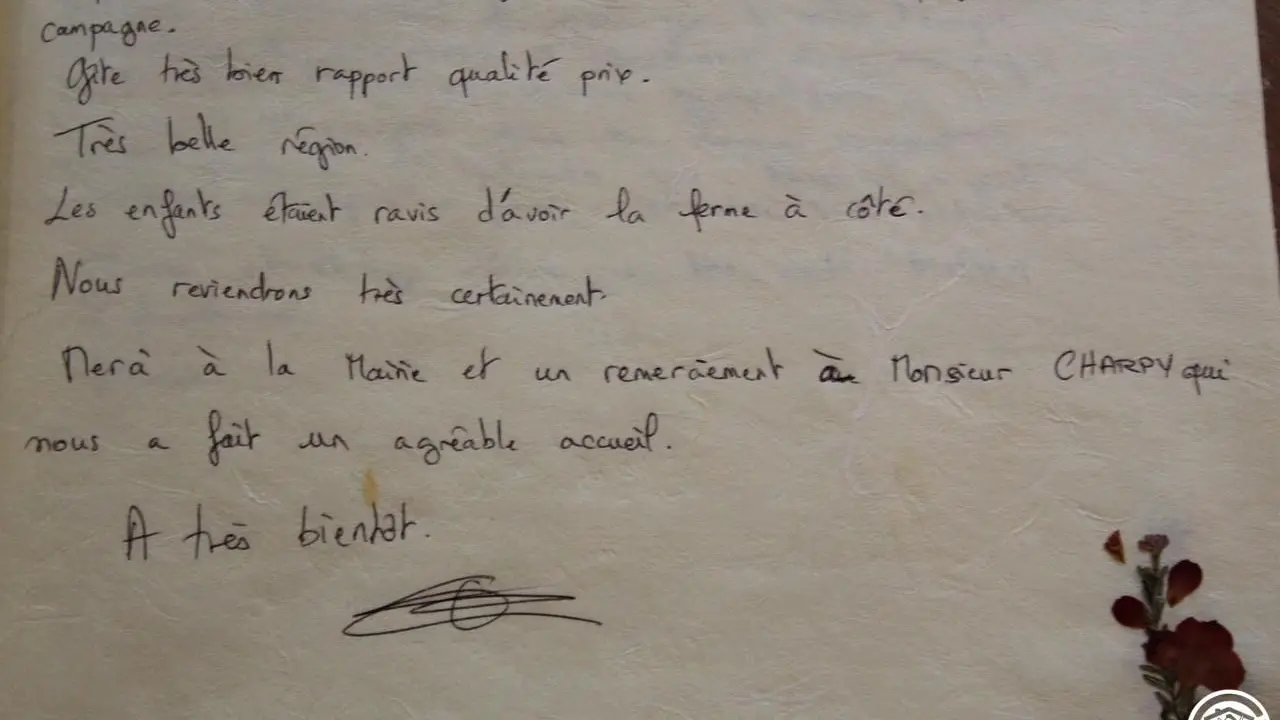 campagne.
Gîte très bien rapport qualité prix.
Très belle région.
Les enfants étaient ravis d'avoir la ferme à côté.
Nous reviendrons très certainement.
Merci à la Mairie et un remerciement à Monsieur CHARPY qui
nous a fait un agréable accueil.
A très bientôt.